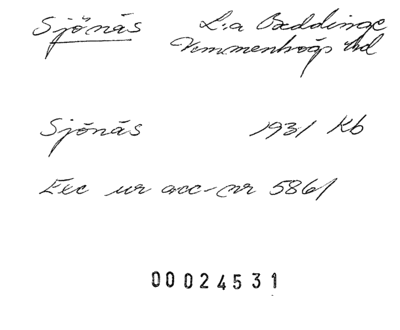 Sjönäs L:a Beddinge
Vemmenhögs hd
Sjönäs 1931 Kb
Exc ur acc-nr 5861
00024531